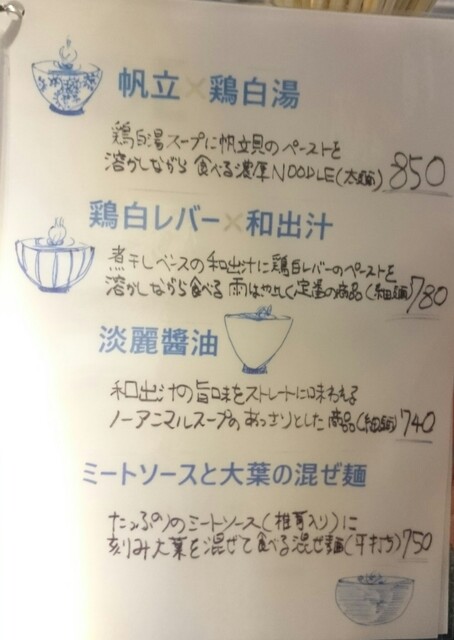 帆立×鶏白湯
鶏白湯スープに帆立貝のペーストを
溶かしながら食べる濃厚NOODLE(太麺) 850
鶏白レバー×和出汁
煮干しベースの和出汁に鶏白レバーのペーストを
溶かしながら食べる 定番の商品(細麺) 780
淡麗醤油
和出汁の旨味をストレートに味わえる
ノーアニマルスープのあっさりとした商品(細麺) 740
ミートソースと大葉の混ぜ麺
たっぷりのミートソース(椎茸入り)に
刻み大葉を混ぜて食べる混ぜ麺(平打ち) 750